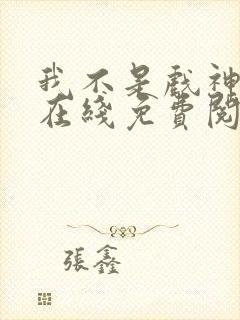 我不是戲神
在綫免費閱
張鑫